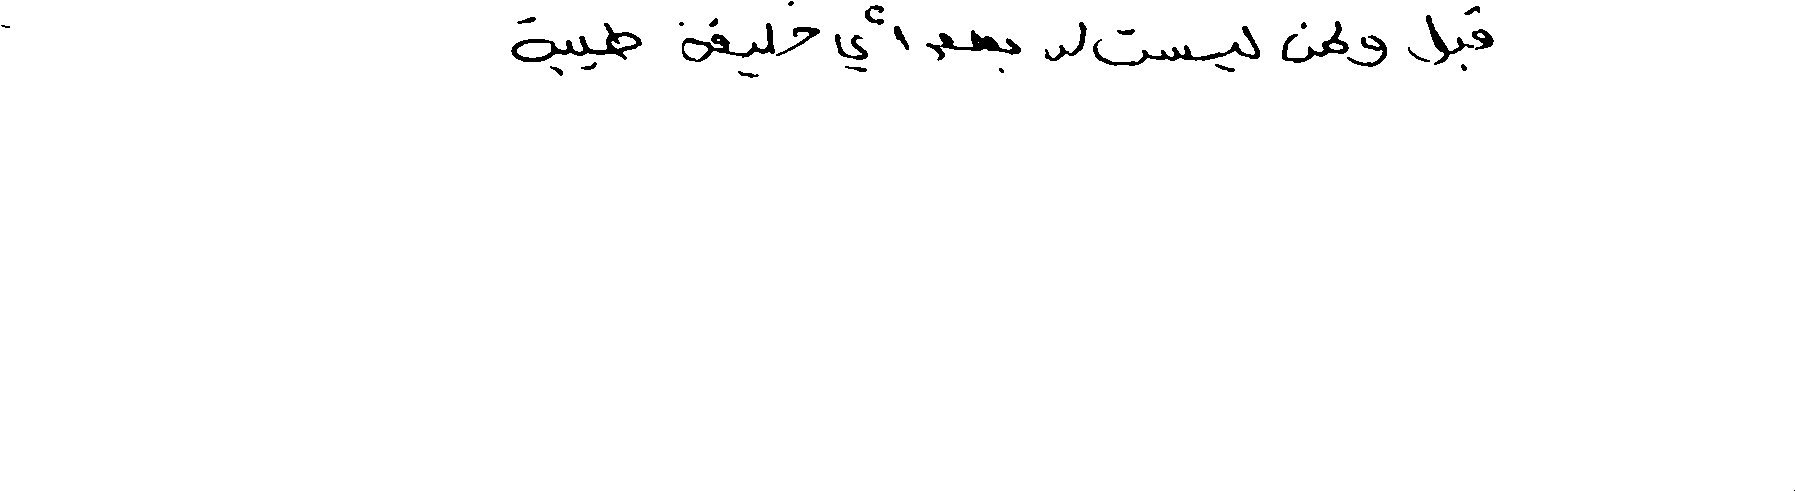 قبل ولكن ليست لد أي خليفة طبية